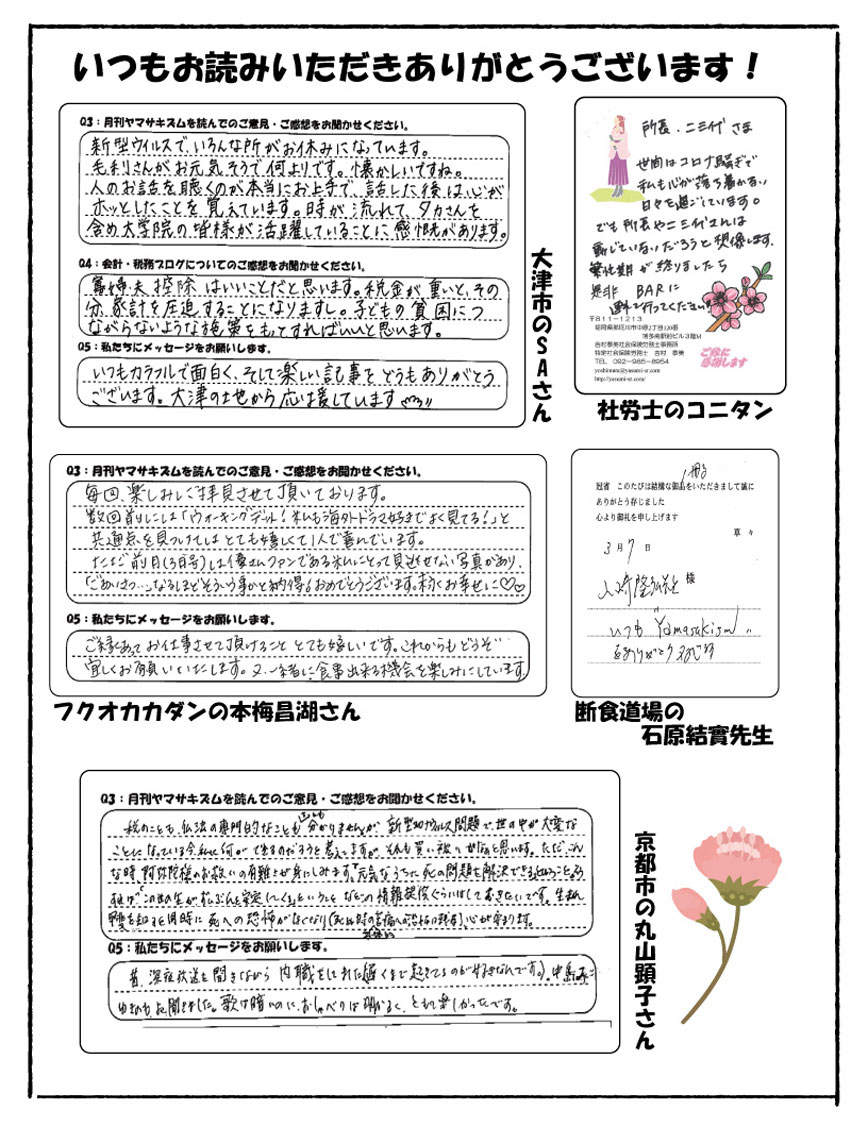 いつもお読みいただきありがとうございます！
Q3：月刊ヤマサキズムを読んでのご意見・ご感想をお聞かせください。
新型ウィルスで、いろんな所がお休みになっています。
毛利さんがお元気そうで何よりです。懐かしいですね。
人のお話を聴くのが本当にお上手で、話した後は心が
ホッとしたことを覚えています。時が流れて、タカさんを
含め大学院の皆様が活躍していることに感慨があります。
Q4：会計・税務ブログについてのご感想をお聞かせください。
寡婦・夫控除はいいことだと思います。税金が重いと、その
分、家計を圧迫することになりますし。子どもの貧困につ
ながらないような施策をもっとすればいいと思います。
Q5：私たちにメッセージをお願いします。
いつもカラフルで面白く、そして楽しい記事をどうもありがとう
ございます。大津の地から応援しています
大津市のSAさん
所長、ニミイダさま
世間はコロナ騒ぎで
私も心が落ち着かない
日々を過ごしています。
でも所長やニミイダさんは
動じていないだろうと想像します。
繁忙期が終りましたら
是非 BARに
連れて行ってください
〒811-1213
福岡県那珂川市中原2丁目120番
博多南駅前ビル3階M
吉村事美社会保険労務士事務所
特定社会保険労務士 吉村 事美
TEL 092-985-8954
yoshimura@yasumi-sr.com
http://yasumi-sr.com/
ご縁に
感謝します
社労士のコニタン
Q3：月刊ヤマサキズムを読んでのご意見・ご感想をお聞かせください。
毎回、楽しみに拝見させて頂いております。
数回前には「ウォーキングデット！私も海外ドラマ好きでよく見てる！」と
共通点を見つけてはとても嬉しくて1人で喜んでいます。
ただ前月(3月号)は優さんファンである私にとって見逃せない写真があり、
「ごあいさつ…」なるほどそういう事かと納得。おめでとうございます。末永くお幸せに♡♡
Q5：私たちにメッセージをお願いします。
ご縁あってお仕事させて頂けること とても嬉しいです。これからもどうぞ
宜しくお願いいたします。又、一緒に食事出来る機会を楽しみにしています。
フクオカカダンの本梅昌湖さん
冠省 このたびは結構な御品をいただきまして誠に
ありがとう存じました
心より御礼を申し上げます
草々
3月7日
山崎隆弘先生 様
いつも "Yamasakism"
をありがとうございます
断食道場の
石原結實先生
Q3：月刊ヤマサキズムを読んでのご意見・ご感想をお聞かせください。
税のことも、仏法の専門的なことも分かりませんが、新型コロナウィルス問題で、世の中が大変な
ことになっている今、私に何ができるのだろうと考えてますが、それも買い被りかなと思います。ただ、こん
な時、阿弥陀様のお救いの有難さが身にしみます。元気なうちに死の問題を解決できるということ
Q5：私たちにメッセージをお願いします。
昔、深夜放送を聞きながら 内職をしたり(遅くまで起きてるのが好きなんです)。中島みユ
ゆきもよく聞きました。歌は暗いのに、おしゃべりは明るく、とても楽しかったです。
京都市の丸山顕子さん